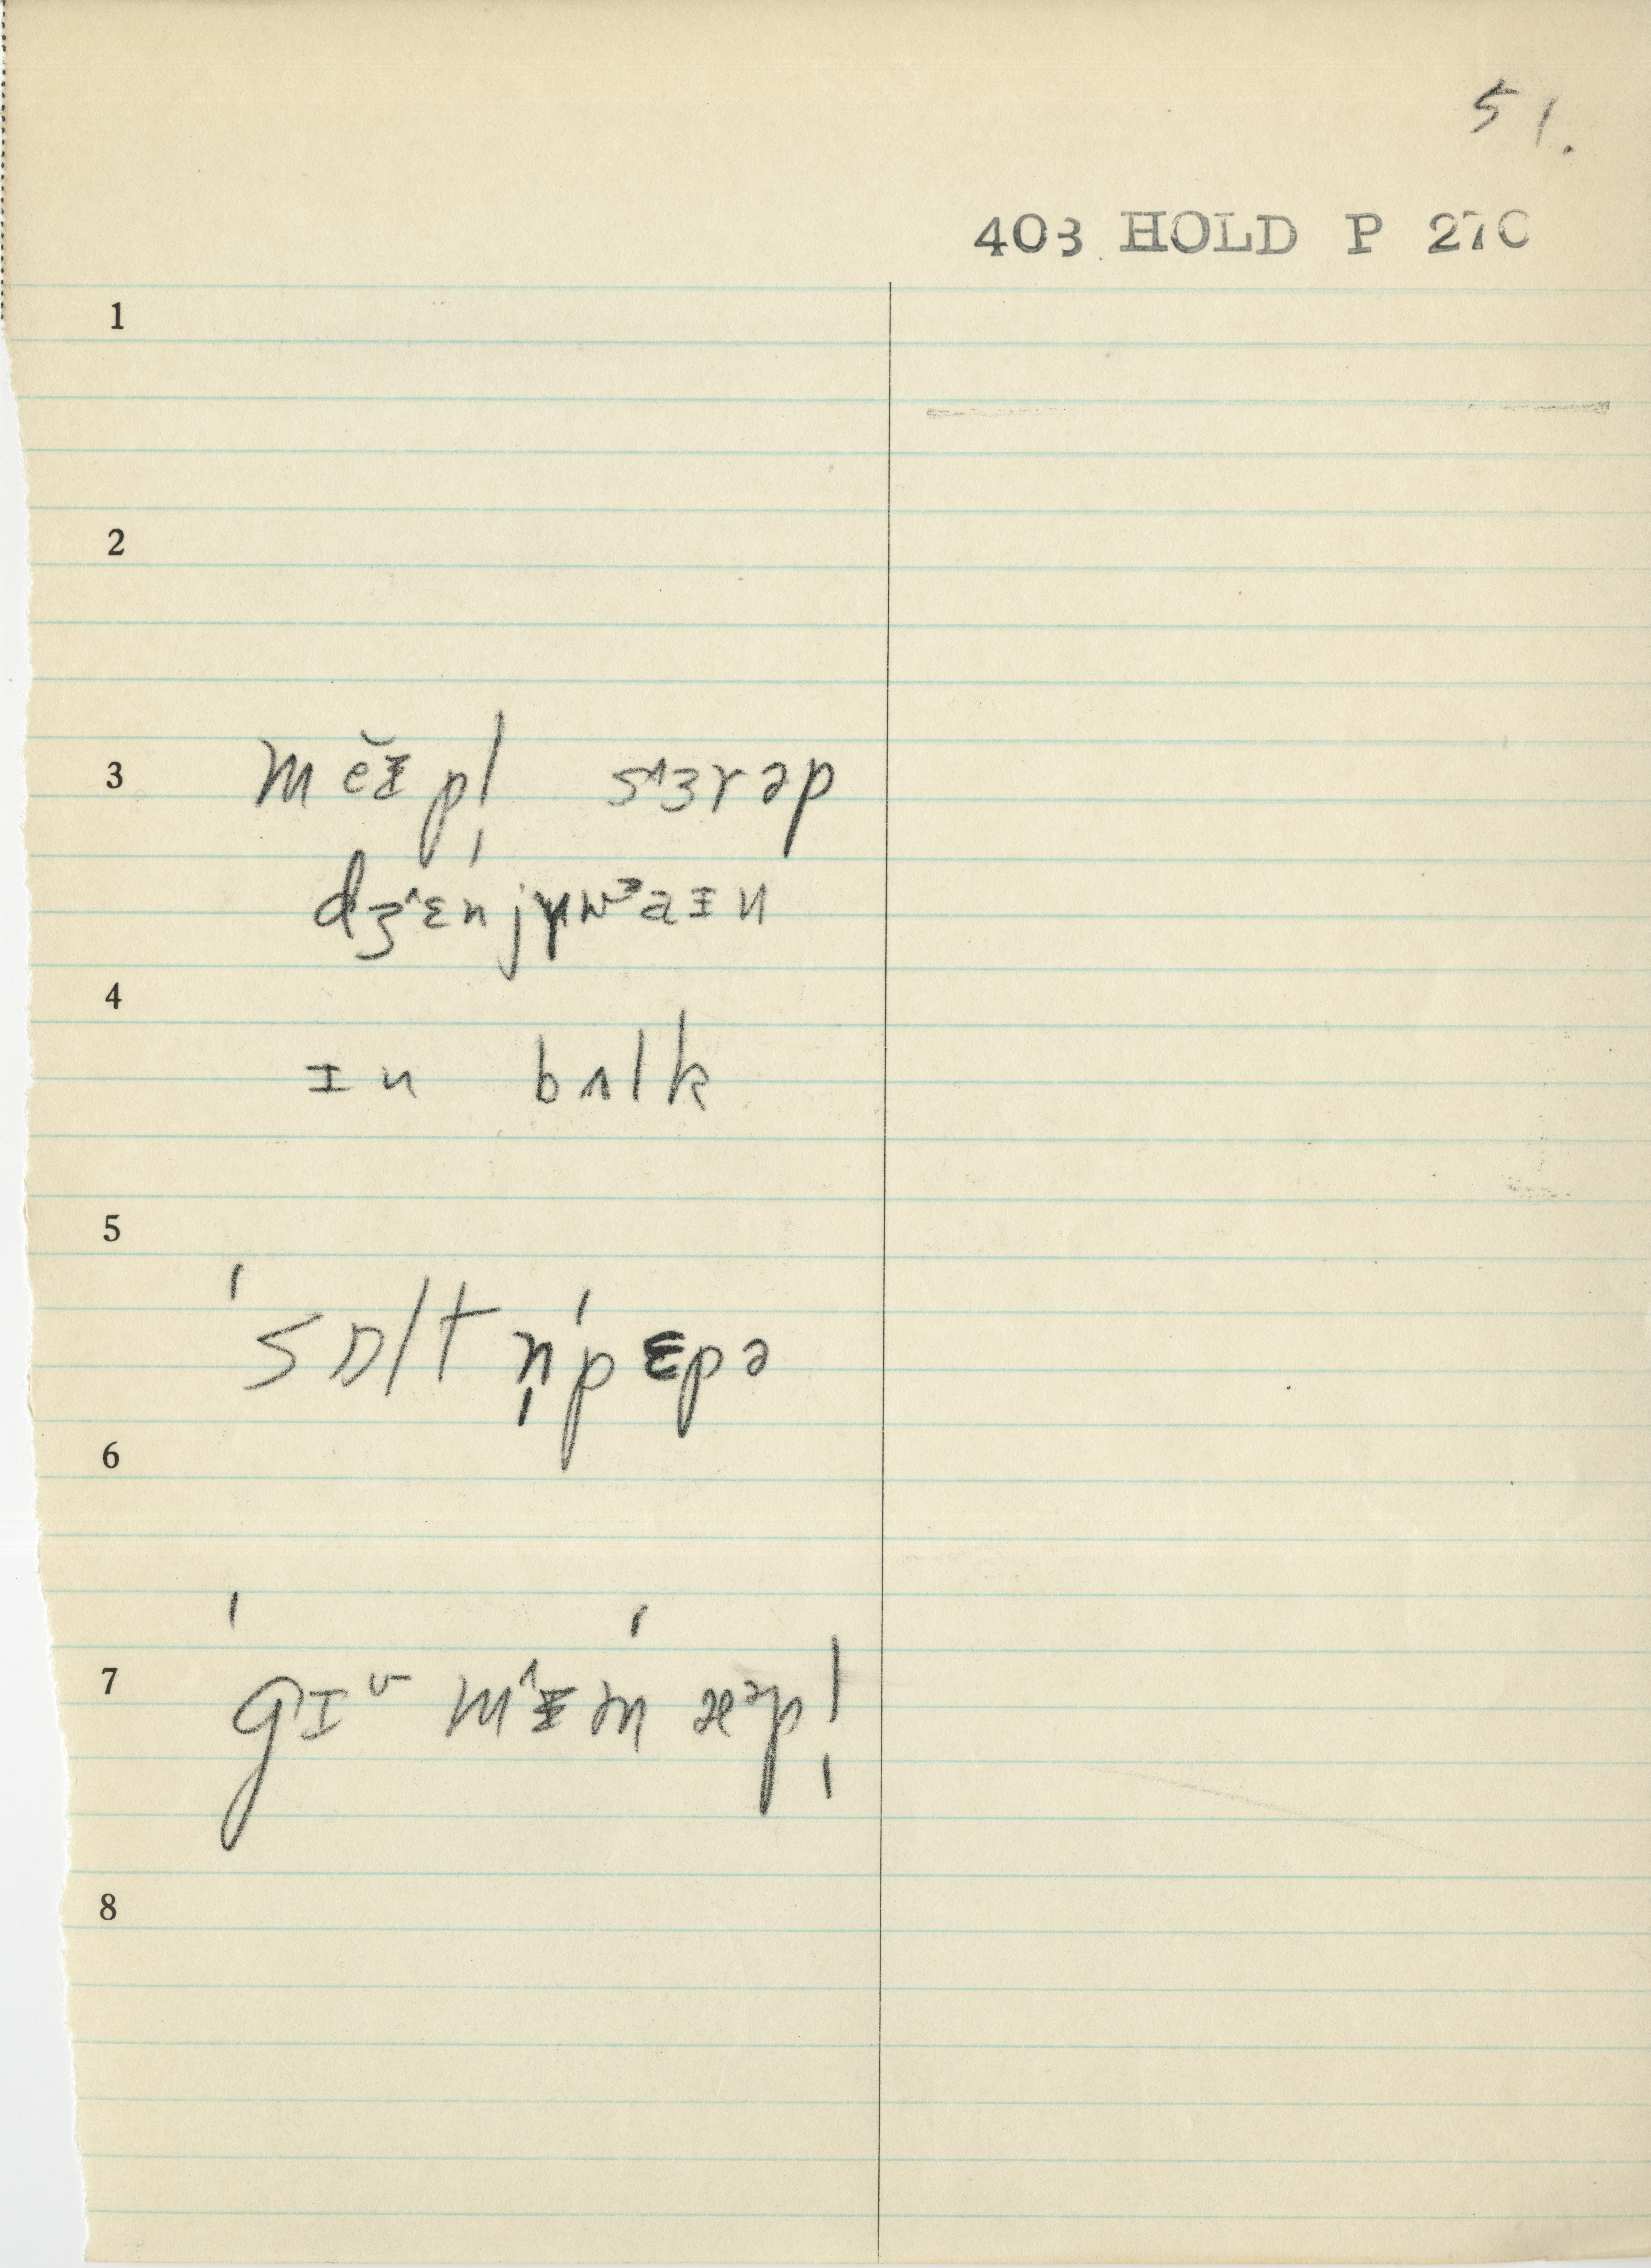 51.
403 HOLD P 270
1
2
3 mĕɪpl̩ s˄ɜrəp
dʒ˄ɛnjɪ̯wᶾaɪn
4
ɪn bʌlk
5
ˈsɒltn̩ˈpɛpə
6
7 ˈgɪᵛ m˄ɪmˈæᵊpl̩
8